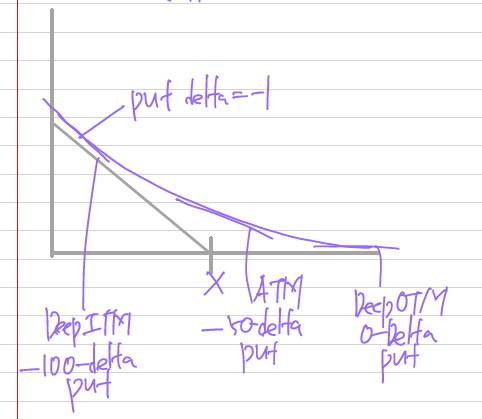 put delta=-1
X
Deep ITM
-100-delta
put
ATM
-50-delta
put
Deep OTM
0-Delta
put